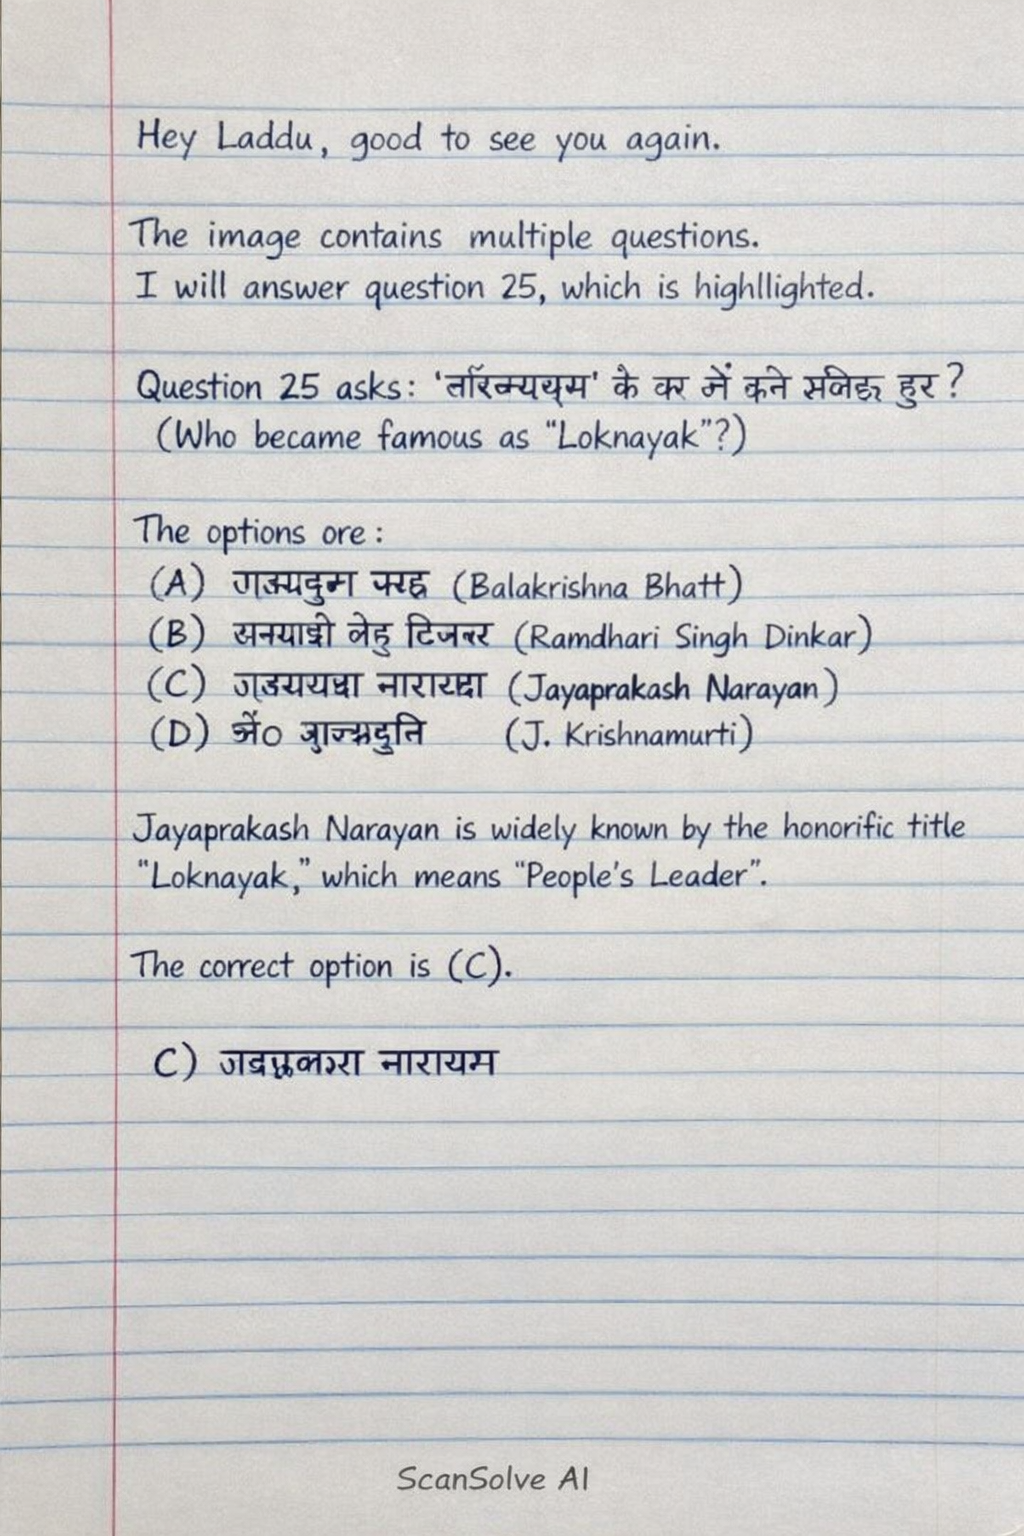 Hey Laddu, good to see you again.
The image contains multiple questions.
I will answer question 25, which is highllighted.
Question 25 asks: के में हुर?
(Who became famous as "Loknayak"?)
The options ore:
(A) (Balakrishna Bhatt)
(B) (Ramdhari Singh Dinkar)
(C) (Jayaprakash Narayan)
(D) (J. Krishnamurti)
Jayaprakash Narayan is widely known by the honorific title
"Loknayak," which means "People's Leader".
The correct option is (C).
C) नारायम
ScanSolve AI